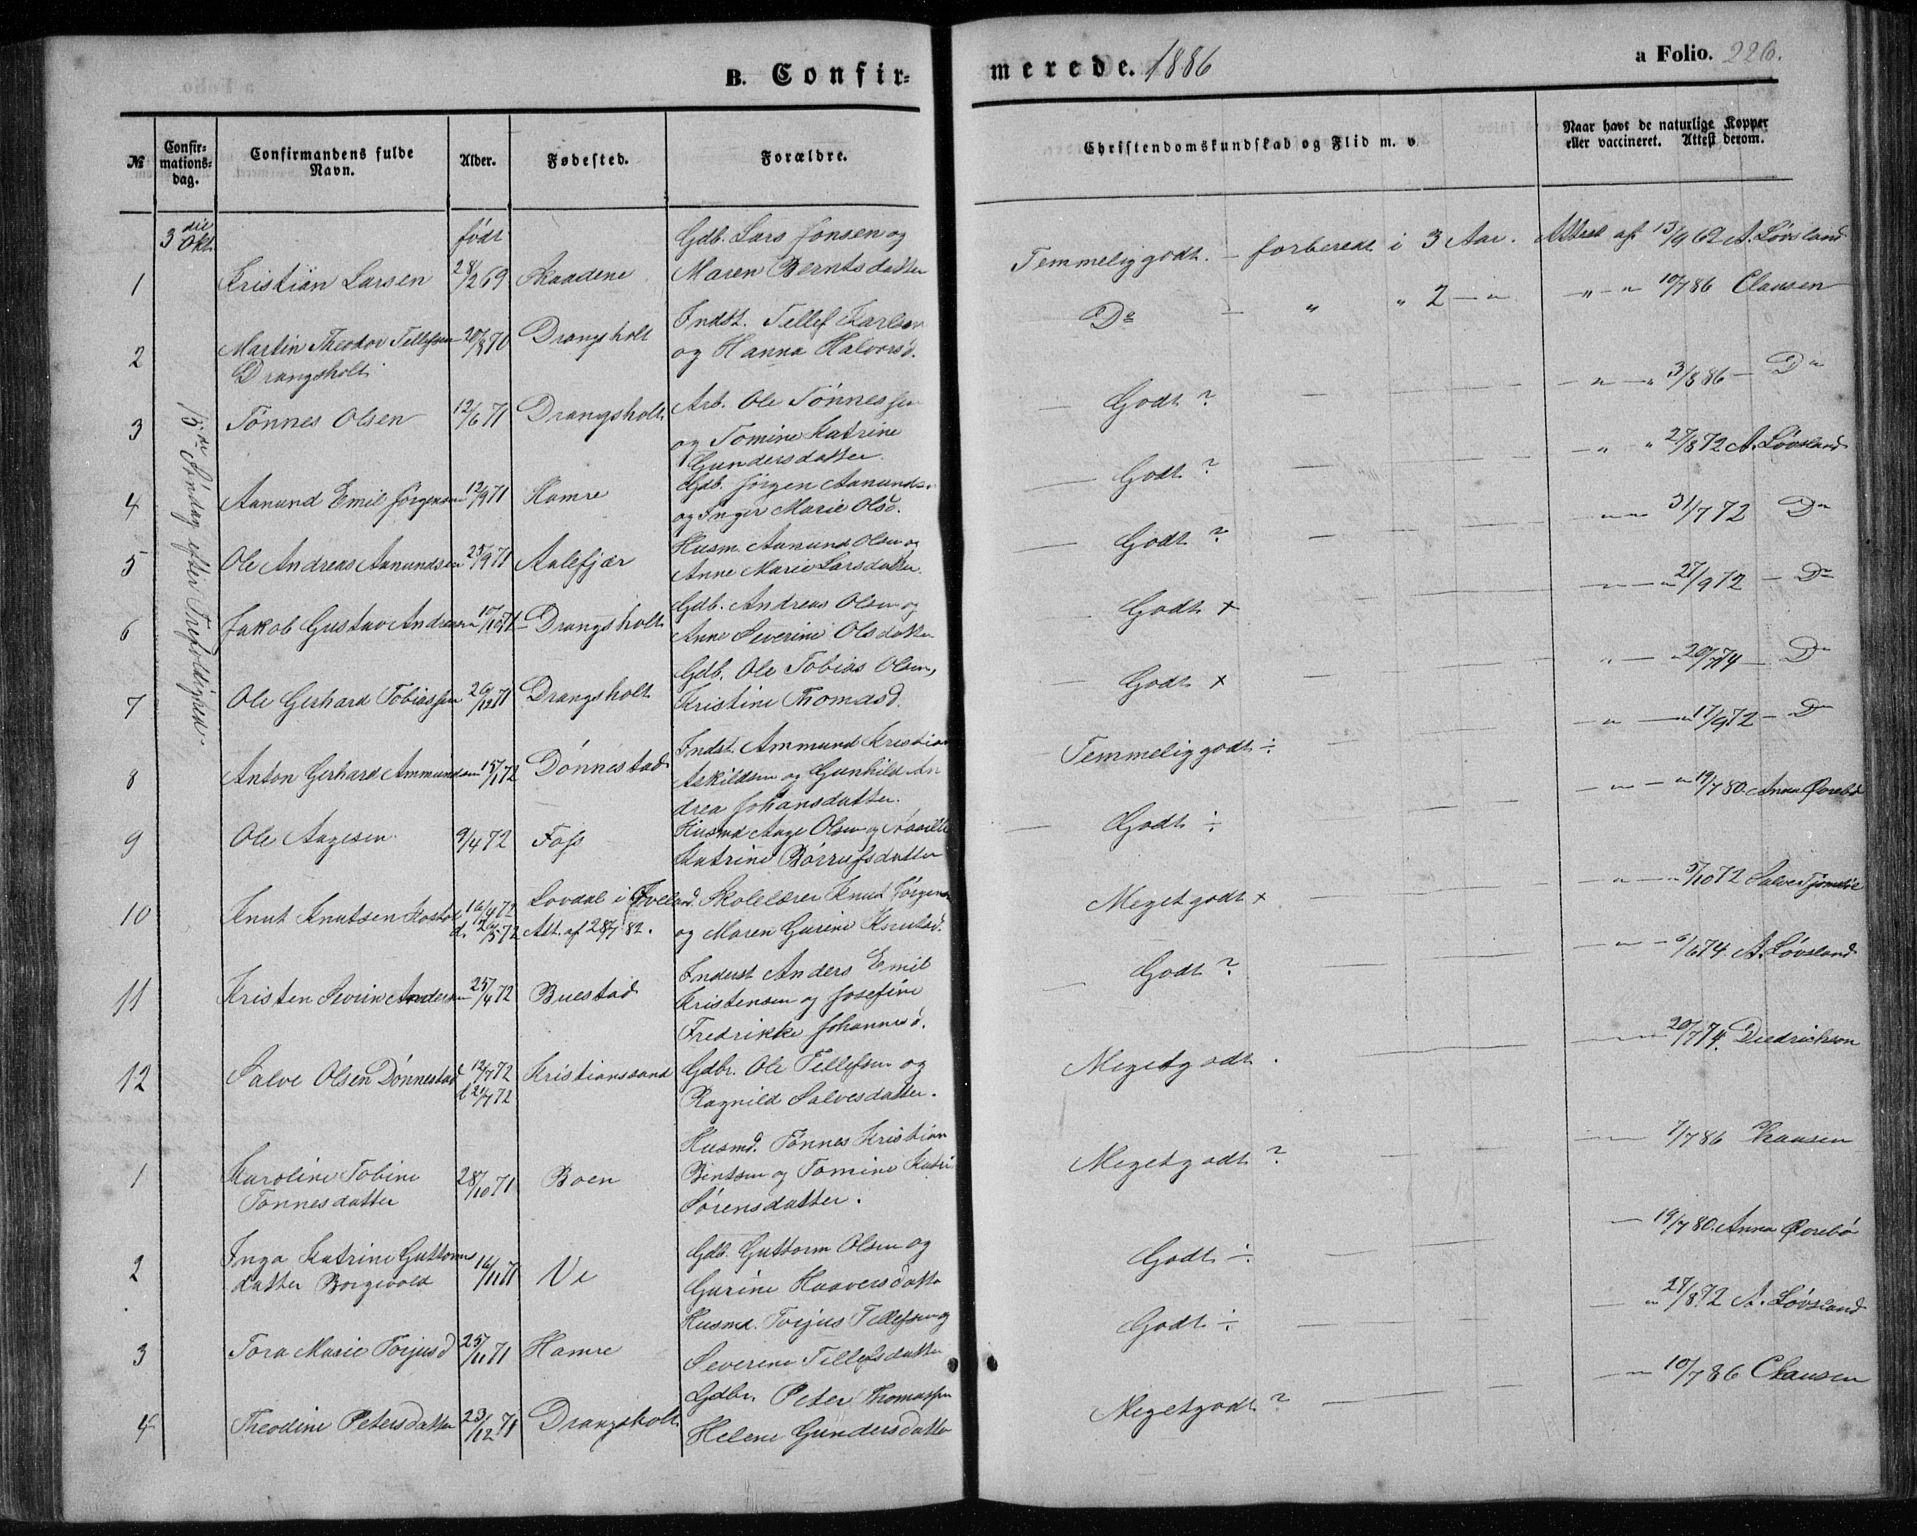 B. Confir-
merede. 1886
a Folio. 226.
№
Confir-
mations-
dag.
Confirmandens fulde
Navn.
Alder.
Fødested.
Forældre.
Christendomskundskab og Flid m. v.
Naar havt de naturlige Kopper
eller vaccineret. Attest derom.
3 die Okt.
15de Søndag efter Trefoldighed.
født
Gdb. Lars Jonsen og
1 Kristian Larsen 28/2 69 Skaadene Maren Berntsdatter Temmelig godt. — forberedt i 3 Aar. Attest af 13/9 62 A. Løvsland
2 Martin Theodor Tellefsen 20/8 70 Drangsholt Indst. Tellef Karlsen Do — " " 2 — " — " — " 10/7 86 Clausen
Drangsholt og Hanna Halvorsd.
3 Tønnes Olsen 12/6 71 Drangsholt Arb. Ole Tønnessen — Godt ? — " — " 3/8 86 — Do
og Tomine Katrine
Gundersdatter
4 Aanund Emil Jørgensen 12/9 71 Hamre Gdb. Jørgen Aanunds. — Godt ? — " " 27/8 72 A. Løvsland
og Inger Marie Olsd.
5 Ole Andreas Aanundsen 25/9 71 Aalefjær Husm. Aanund Olsen og — Godt ? — 31/7 72 Do
Anne Marie Larsdatter.
6 Jakob Gustav Andreasen 10/10 71 Drangsholt Gdb. Andreas Olsen og Godt + — 27/9 72 — Do
Anne Severine Olsdatter
7 Ole Gerhard Tobiassen 26/12 71 Drangsholt Gdb. Ole Tobias Olsen, — Godt + — 20/7 74 — Do
Kristine Thomasd.
8 Anton Gerhard Ammundsen 15/1 72 Dønnestad Indst. Ammund Kristian — Temmelig godt ÷ — 17/9 72 — Do
Askildsen og Gunhild An
drea Johansdatter.
9 Ole Aagesen 9/4 72 Foss Husmd Aage Olsen og — Godt ÷ — 19/7 80. Anna Øvrebø
Katrine Børrufsdatter
10 Knut Knutsen 16/4 72 Lovdal i Iveland Skolelærer Knut Jørgens. Meget godt + — 5/10 72
d. 12/5 72 Att. af 28/7 82. og Maren Gurine Knutsd.
11 Kristen Severin Andersen 25/4 72 Buestad Inderst Anders Emil Godt ? — 6/6 74. A. Løvsland
Kristensen og Josefine
Fredrikke Johannesd.
12 Salve Olsen Dønnestad 12/7 72 Kristianssand Gdbr. Ole Tellefsen og Meget godt . — 20/7 74. Diedrichson
21/7 72 Ragnild Salvesdatter.
1 Karoline Tobine 28/10 71 Boen Husmd. Tønnes Kristian Meget godt ? — 7/7 86 Clausen
Tønnesdatter Bentsen og Tomine Katri
Sørensdatter.
2 Inga Katrine Guttorms 16/11 71 Ve Gdb. Guttorm Olsen og Godt ÷ — 19/7 80. Anna Øvrebø
datter Borgevold Gurine Haaversdatter
3 Tora Marie Torjusd 25/11 71 Hamre Husmd. Torjus Tellefsen og Godt ÷ — 27/8 72 A. Løvsland
Severine Tellefsdatter
4 Theodine Petersdatter 23/12 71 Drangsholt Gdbr. Peter Thomassen Meget godt ? — 10/7 86 Clausen
Helene Gundersdatter